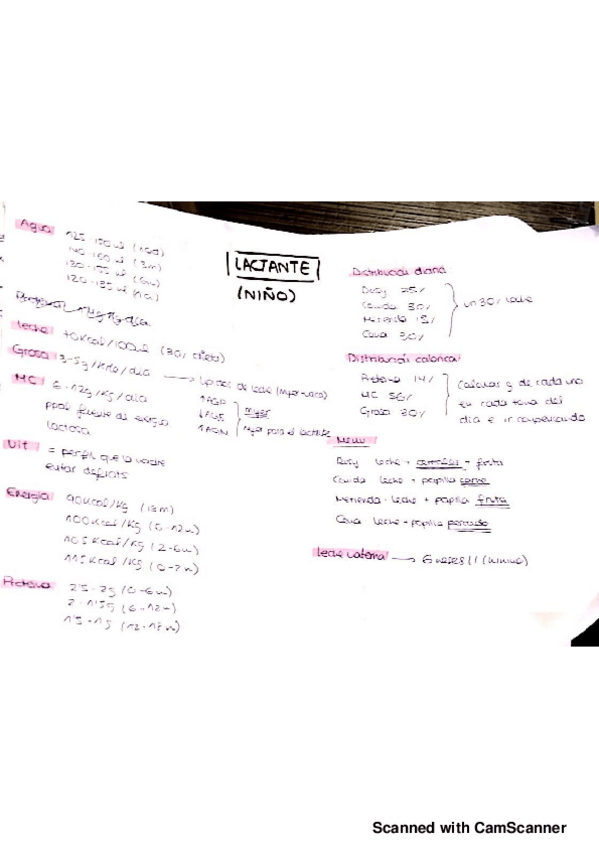 Agua
125-150 ml
140-160 ml (3m)
130-155 ml (6m)
120-135 ml (1a)
leche 70Kcal/100ml (30% dieta)
Grasa 3-5g/Kilo/día → lípidos de leche (Mujer-vaca)
↑AGP
↓AGS mejor
↑AGM Mejor para el lactante
HC 6-12g/Kg/día
ppal fuente de energía
lactosa
Vit = perfil que la madre
evitar déficits
Energía 90Kcal/Kg
100Kcal/Kg (0-12m)
105 Kcal/Kg (2-6m)
115Kcal/Kg (0-2m)
Proteína 2'5-2g (0-6m)
2-1'5g (6-12m)
1'5-1g
LACTANTE
(NIÑO)
Distribución diaria:
Desy 25%
Comida 30%
Merienda 15%
Cena 30%
un 30% leche
Distribución calórica:
Proteína 14%
HC 56%
Grasa 30%
Calculas g de cada uno
en cada toma del
día e ir compensando
Menú
Desy leche + cereales + fruta
Comida leche + papilla carne
Merienda leche + papilla fruta
Cena leche + papilla pescado
leche materna → 6 meses (mínimo)
Scanned with CamScanner